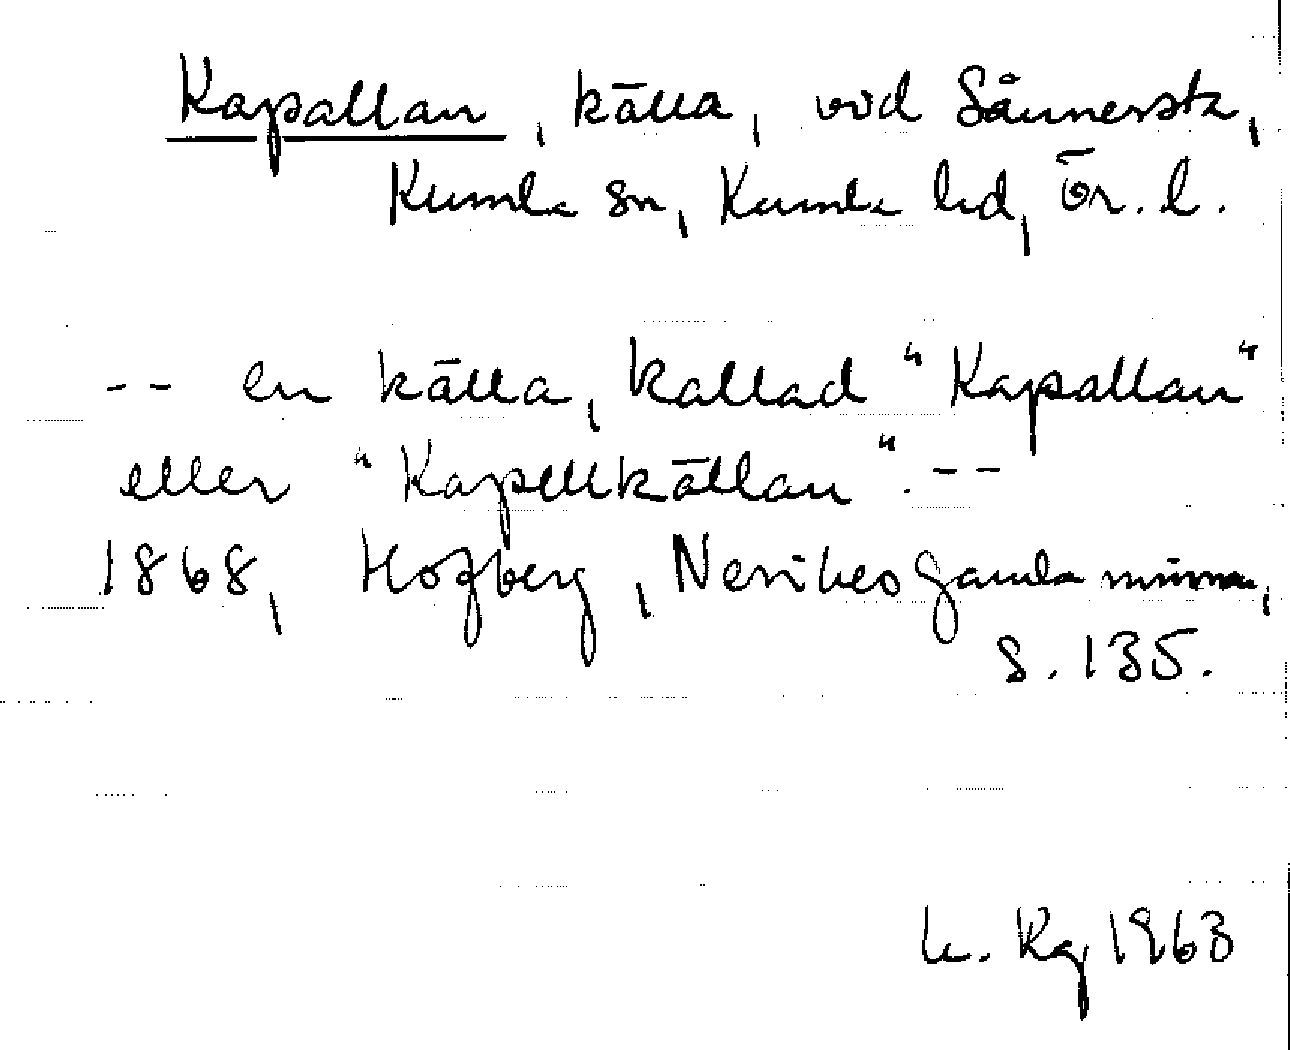 Kapallan, källa, vid Sånnersta,
Kumla sn, Kumla hd, Ör. l.
-- en källa, kallad "Kapallan"
eller "Kapellkällan". --
1868, Hofberg, Nerikes gamla minnen,
s. 135.
Kg 1963